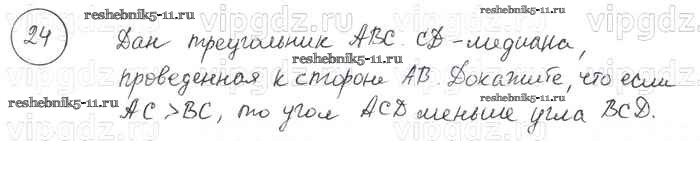 24
Дан треугольник ABC. CD - медиана,
проведенная к стороне AB. Докажите, что если
AC > BC, то угол ACD меньше угла BCD.
reshebnik5-11.ru
reshebnik5-11.ru
reshebnik5-11.ru
reshebnik5-11.ru
reshebnik5-11.ru
reshebnik5-11.ru
vipgdz.ru
vipgdz.ru
vipgdz.ru
vipgdz.ru
vipgdz.ru
vipgdz.ru